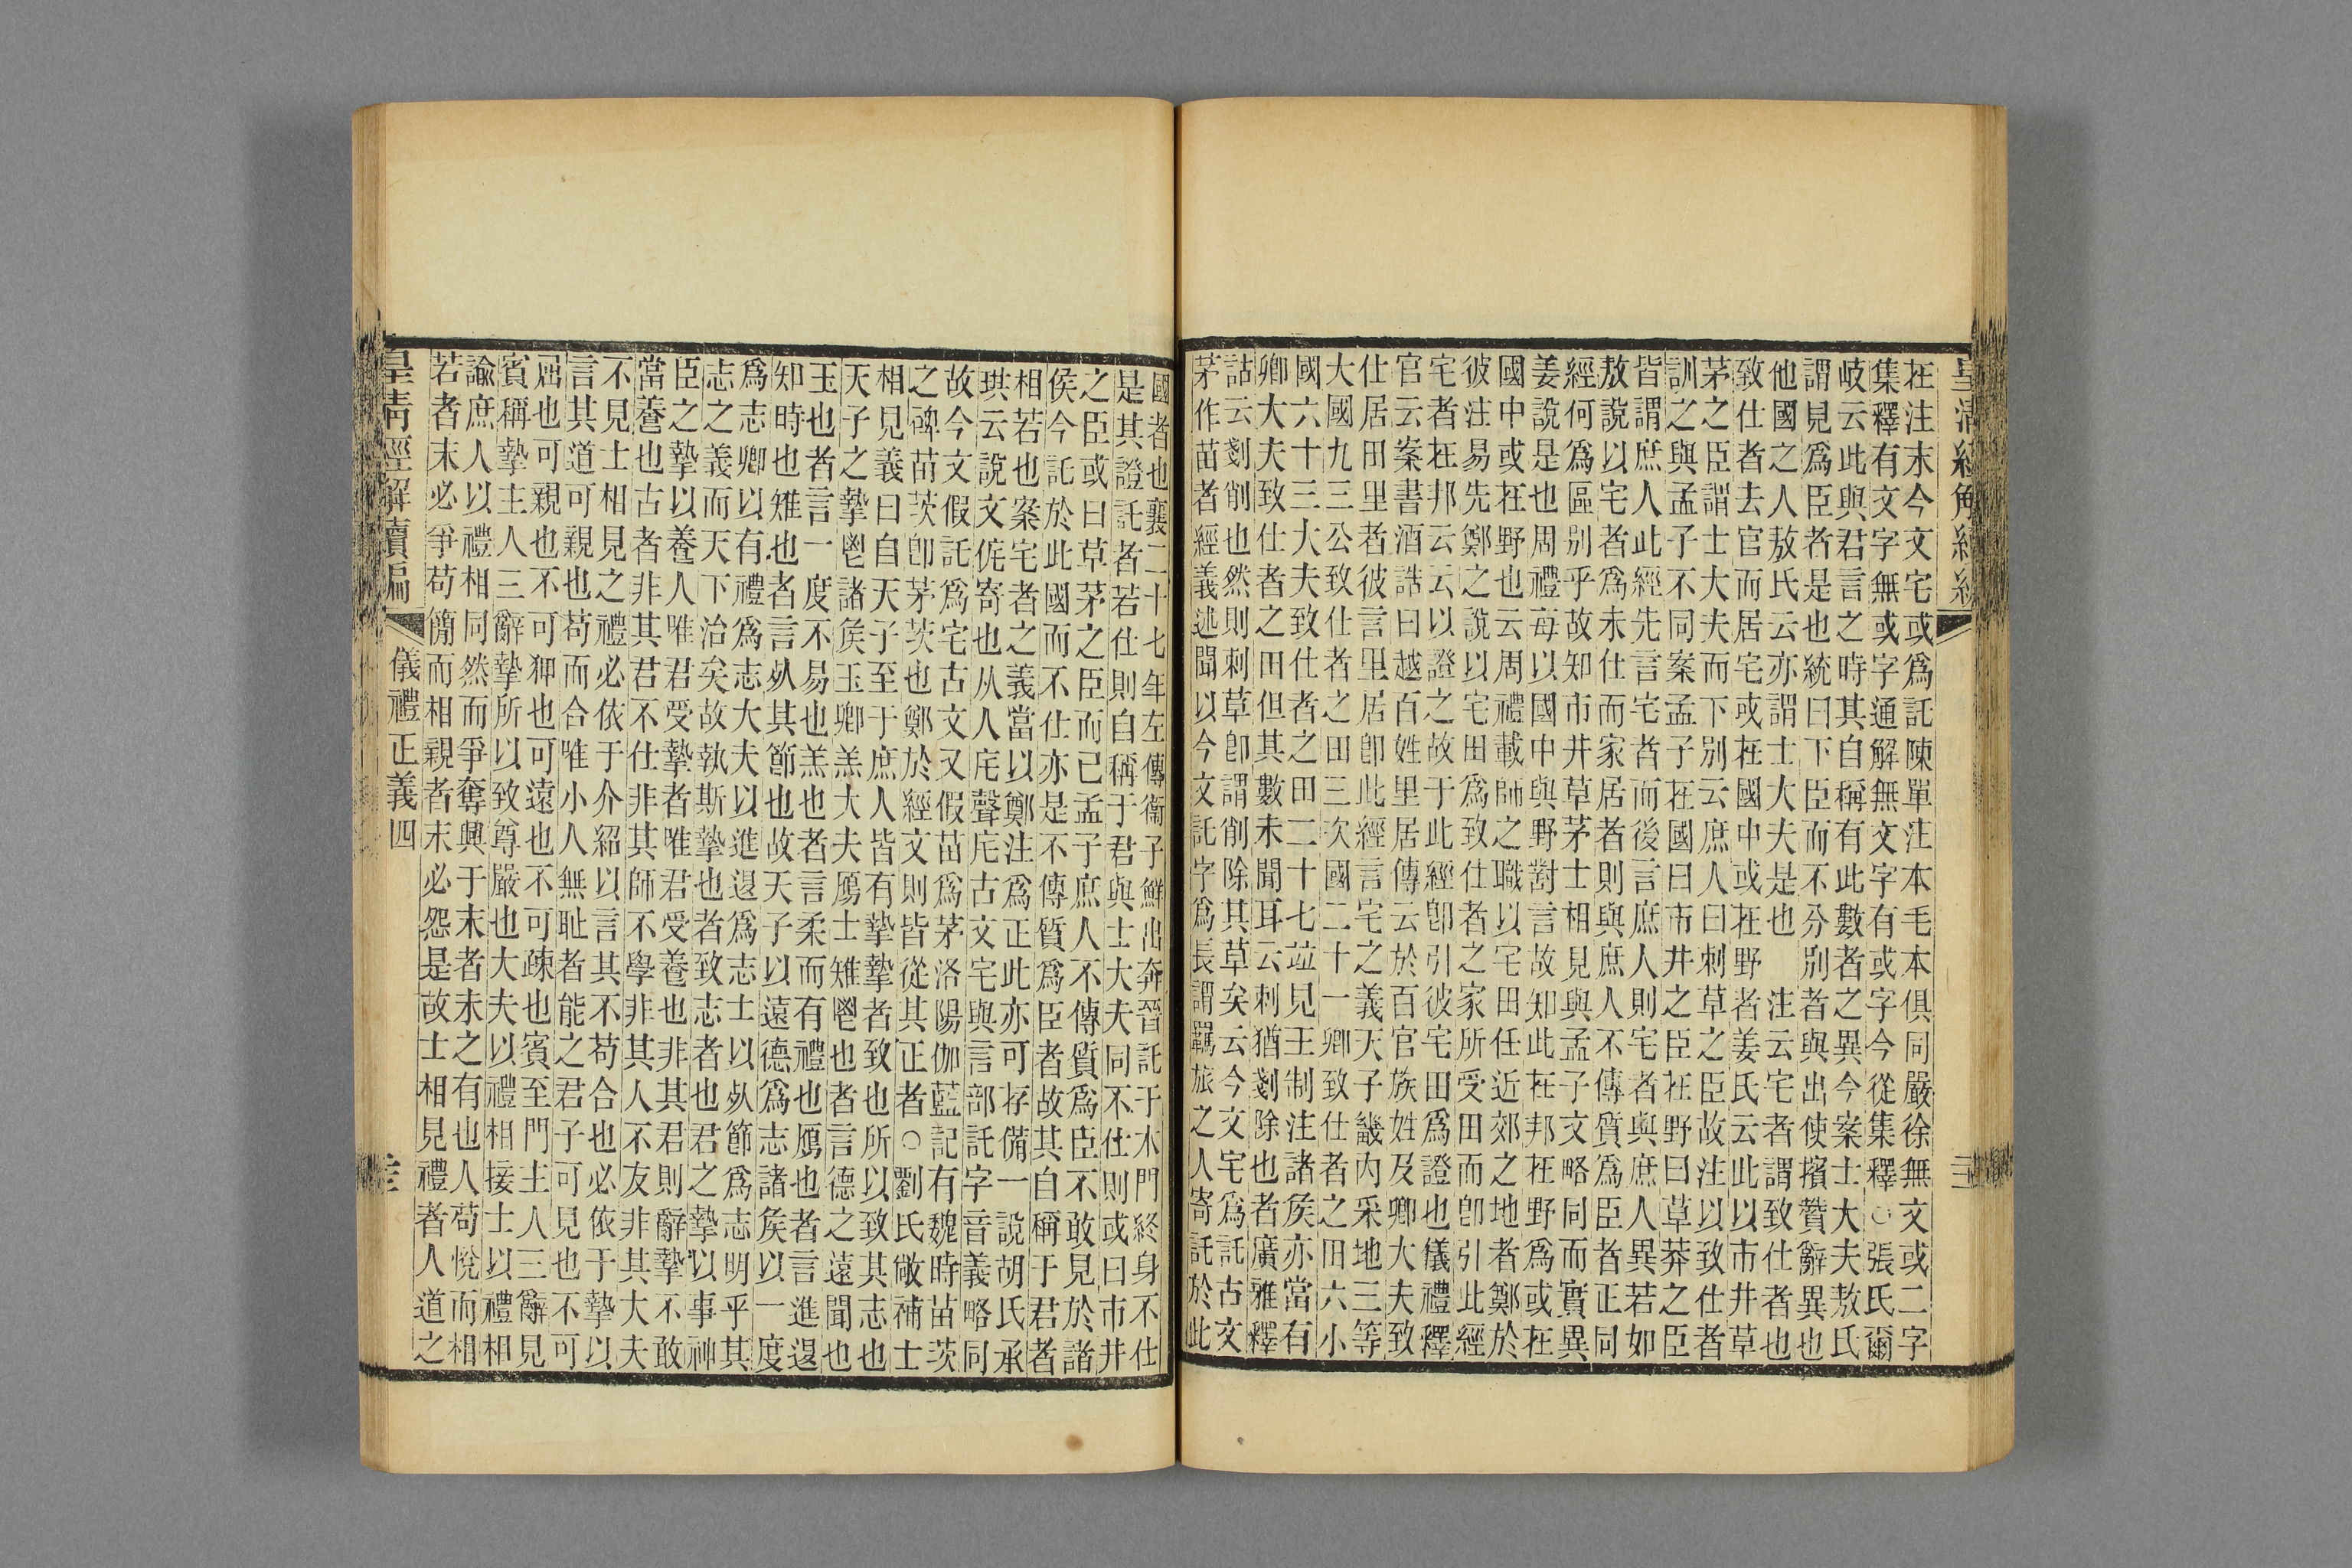 在注末今文宅或爲託陳單注本毛本俱同嚴徐無文或二字
集釋有文字無或字通解無文字有或字今從集釋○張氏爾
岐云此與君言之時其自稱有此數者之異今案士大夫敖氏
謂見爲臣者是也統曰下臣而不分別者與出使擯贊辭異也
他國之人敖氏云亦謂士大夫是也　注云宅者謂致仕者也
致仕者去官而居宅或在國中或在野者姜氏云此以市井草
茅之臣謂士大夫而下別云庶人曰刺草之臣故注以致仕者
訓之與孟子不同案孟子在國曰市井之臣在野曰草莽之臣
皆謂庶人此經先言宅者而後言庶人則宅者與庶人異若如
敖說以宅者爲未仕而家居者則與庶人不傳質爲臣者正同
經何爲區别乎故知市井草茅士相見與孟子文略同而實異
姜說是也周禮每以國中與野對言故知此在邦在野爲或在
國中或在野也云周禮載師之職以宅田任近郊之地者鄭於
彼注易先鄭之說以宅田爲致仕者之家所受田而卽引此經
宅者在邦云云以證之故于此經卽引彼宅田爲證也儀禮釋
官云案書酒誥曰越百姓里居傳云於百官族姓及卿大夫致
仕居田里者彼言里居卽此經言宅之義天子畿内采地三等
大國九三公致仕者之田三次國二十一卿致仕者之田六小
國六十三大夫致仕者之田二十七竝見王制注諸矦亦當有
卿大夫致仕者之田但其數未聞耳云刺猶剗除也者廣雅釋
詁云剗削也然則刺草卽謂削除其草矣云今文宅爲託古文
茅作苗者經義述聞以今文託字爲長謂羈旅之人寄託於此
國者也襄二十七年左傳衞子鮮出奔晉託于木門終身不仕
是其證託者若仕則自稱于君與士大夫同不仕則或曰市井
之臣或曰草茅之臣而已孟子庶人不傳質爲臣不敢見於諸
侯今託於此國而不仕亦是不傳質爲臣者故其自稱于君者
相若也案宅者之義當以鄭注爲正此亦可存備一說胡氏承
珙云說文侂寄也从人㡯聲㡯古文宅與言部託字音義略同
故今文假託爲宅古文又假苗爲茅洛陽伽藍記有魏時苗茨
之碑苗茨卽茅茨也鄭於經文則皆從其正者○劉氏敞補士
相見義曰自天子至于庶人皆有摯摯者致也所以致其志也
天子之摯鬯諸矦玉卿羔大夫鴈士雉鬯也者言德之遠聞也
玉也者言一度不易也羔也者言柔而有禮也鴈也者言進退
知時也雉也者言死其節也故天子以遠德爲志諸矦以一度
爲志卿以有禮爲志大夫以進退爲志士以死節爲志明乎其
志之義而天下治矣故執斯摯也者致志者也君之摯以事神
臣之摯以養人唯君受摯者唯君受養也非其君則辭摯不敢
當養也古者非其君不仕非其師不學非其人不友非其大夫
不見士相見之禮必依于介紹以言其不苟合也必依于摯以
言其道可親也苟而合唯小人無耻者能之君子可見也不可
屈也可親也不可狎也可遠也不可疎也賓至門主人三辭見
賓稱摯主人三辭摯所以致尊嚴也大夫以禮相接士以禮相
諭庶人以禮相同然而爭奪興于末者未之有也人苟悅而相
若者末必爭苟簡而相親者末必怨是故士相見禮者人道之
皇清經解續編　儀禮正義四